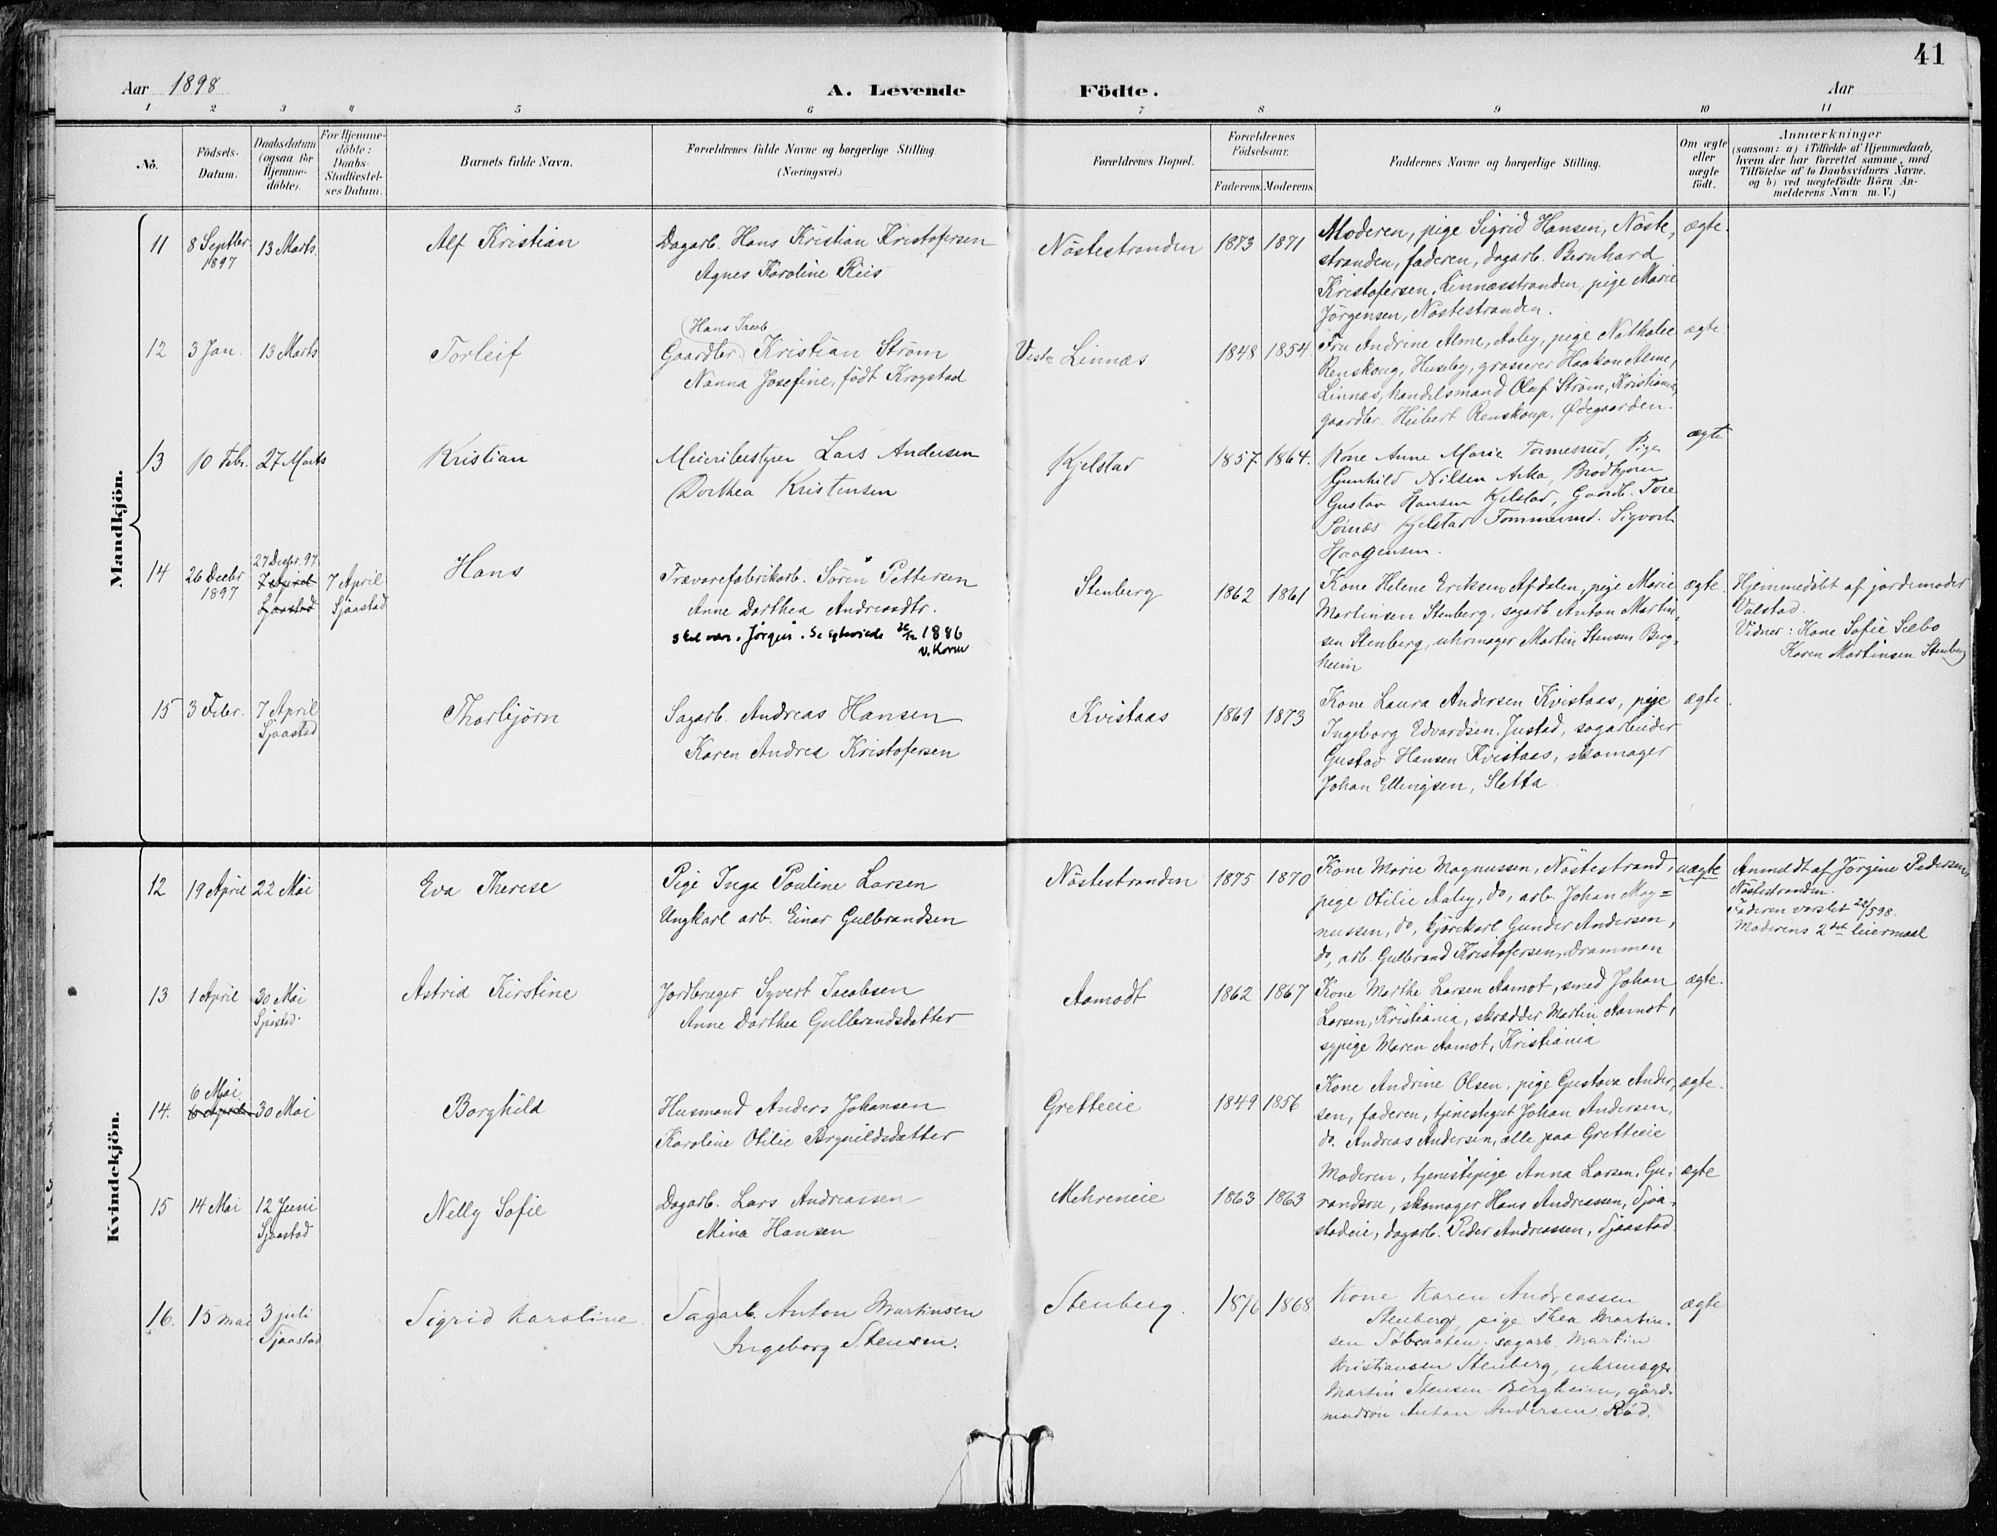 41
Aar 1898
A. Levende Födte.
Aar
1 2 3 4 5 6 7 8 9 10 11
No.
Födsels-
Datum.
Daabsdatum
(ogsaa for
Hjemme-
döbte).
For Hjemme-
döbte:
Daabs-
Stadfæstel-
ses Datum.
Barnets fulde Navn.
Forældrenes fulde Navne og borgerlige Stilling
(Næringsvei.)
Forældrenes Bopæl.
Forældrenes
Födselsaar.
Faderens. Moderens.
Faddernes Navne og borgerlige Stilling.
Om ægte
eller
uægte
födt.
Anmærkninger
(saasom: a) i Tilfælde af Hjemmedaab,
hvem der har forrettet samme, med
Tilföielse af to Daabsvidners Navne,
og b) ved uægtefödte Börn An-
melderens Navn m. V.)
Mandkjön.
11 8 Septbr. 1897 13 Marts Alf Kristian
Dagarb. Hans Kristian Kristofersen
Agnes Karoline Riis
Nöstestranden 1873 1871
Moderen, pige Sigrid Hansen, Nöste-
stranden, faderen, dagarb. Bernhard
Kristofersen, Linnæsstranden, pige Marie
Jörgensen, Nöstestranden.
ægte.
12 3 Jan. 13 Marts Torleif
(Hans Jacob
Gaardbr. Kristian Strøm
Nanna Josefine, født Krogstad
Vestr. Linnæs 1848 1854.
Fru Andrine Alme, Aaby, pige Nathalie
Renskoug, Huseby, grosserer Haakon Alme,
Linnæs, handelsmand Olaf Strøm, Kristiania,
gaardbr. Hilbert Renskoug. Ødegaarden.
ægte.
13 10 Febr. 27 Marts Kristian
Meieribestyrer Lars Andersen
Dorthea Kristensen
Kjelstad 1857. 1864.
Kone Anne Marie Tommerud, Pige
Gunhild Nilsen Arka, Brödkjører
Gustav Hansen Kjelstad, Gaardb. Tore
Sönæs Kjelstad Tommerud. Sigvart
Haagensen.
ægte
14 26 Decbr 1897
27 Decbr. 97.
7 April
Sjaastad
7 April
Sjaastad
Hans
Trævarefabrikarb. Sören Pettersen
Anne Dorthea Andreasdtr.
skal være Jørgen. Se ægteviede 26/12 1886
Stenberg 1862 1861
Kone Helene Eriksen Afdalen, pige Marie
Martinsen Stenberg, sagarb. Anton Martin-
sen Stenberg, uhrmager Martin Stensen Berg-
heim
ægte.
Hjemmedöbt af jordemoder
Valstad.
Vidner: Kone Sofie Sæbo
Karen Martinsen Stenberg
15 3 Febr. 7 April
Sjaastad
Thorbjørn
Sagarb. Andreas Hansen
Karen Andrea Kristofersen
Kvistaas 1869 1873
Kone Laura Andersen Kvistaas, pige
Ingeborg Edvardsen, Justad, sagarbeider
Gustav Hansen Kvistaas, skomager
Johan Ellingsen, Sletta.
ægte.
Kvindekjön.
12 19 April 22 Mai Eva Therese
Pige Inga Pauline Larsen
Ungkarl arb. Einar Gulbrandsen
Nöstestranden 1875 1870
Kone Marie Magnussen, Nöstestrand,
pige Otilie Aaby, do, arb. Johan Mag=
nussen, do, kjörekarl Gunder Andersen,
do, arb. Gulbrand Kristofersen, Drammen
uægte
Anmeldt af Jörgine Pedersen,
Nöstestranden.
Faderen varslet 28/5 98.
Moderens 2det leiermaal
13 1 April 30 Mai
Sjaastad.
Astrid Kirstine
Jordbruger Syvert Jacobsen
Anne Dorthea Gulbrandsdatter
Aamodt 1862 1867
Kone Marthe Larsen Aamot, smed Johan
Larsen, Kristiania, skrædder Martin Aamot,
sypige Maren Aamot, Kristiania
ægte.
14. 6 Mai.
6 April 30 Mai Borghild
Husmand Anders Johansen
Karoline Otilie Brynildsdatter
Gretteeie 1849 1856
Kone Andrine Olsen, pige Gustava Ander-
sen, faderen, tjenestegut Johan Andersen,
do. Andreas Andersen, alle paa Gretteeie
ægte.
15 14 Mai 12 Juni
Sjaastad
Nelly Sofie
Dagarb. Lars Andreassen
Mina Hansen
Mehreneie 1863 1863
Moderen, tjenestepige Anna Larsen, Gu-
randsru, skomager Hans Andreassen, Sjaa-
stadeie, dagarb. Peder Andreassen, Sjaastad
ægte
16. 15 mai 3 juli
Sjaastad
Sigrid Karoline.
Sagarb. Anton Martinsen
Ingeborg Stensen.
Stenberg. 1876 1868
Kone Karen Andreassen
Stenberg, pige Thea Martin-
sen Töbraaten, sagarb. Martin
Kristiansen Stenberg, uhrmager
Martin Stensen Bergheim, gård-
mandsøn Anton Andersen Rød.
ægte